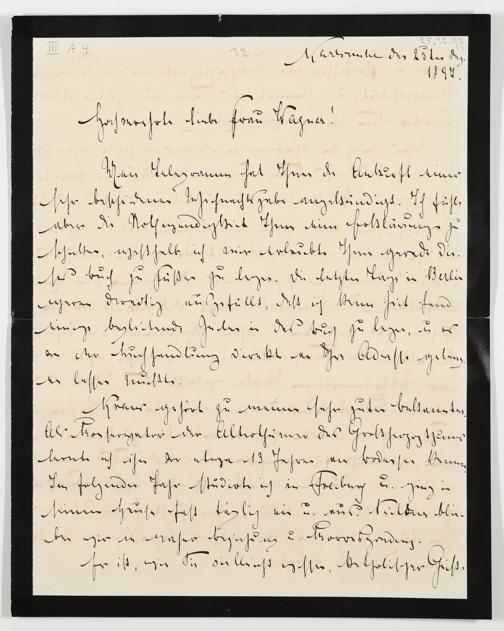 III A 4
12
25.12.97
Karlsruhe den 25ten Dez.
1897.
Hochverehrte liebe Frau Wagner!
Mein Telegramm hat Ihnen die Ankunft einer
sehr bescheidenen Weihnachtsgabe angekündigt. Ich fühle
aber die Nothwendigkeit Ihnen eine Erklärung zu
schulden, weßhalb ich mir erlaubte Ihnen gerade die-
ses Buch zu Füßen zu legen. Die letzten Tage in Berlin
waren derartig ausgefüllt, daß ich keine Zeit fand
einige begleitende Zeilen in das Buch zu legen, u. es
von der Buchhandlung direkt an Ihre Adresse gelang-
en lassen mußte.
Kraus gehört zu meinen sehr guten Bekannten.
Als Konservator der Alterthümer des Großherzogthums
lernte ich ihn vor etwa 13 Jahren am Bodensee kennen.
Im folgenden Jahr studirte ich in Freiburg u. ging in
seinem Hause fast täglich ein u. aus. Seitdem blie-
ben wir in reger Beziehung u. Korrespondenz.
Er ist, wie Sie vielleicht wissen, katholischer Geist-